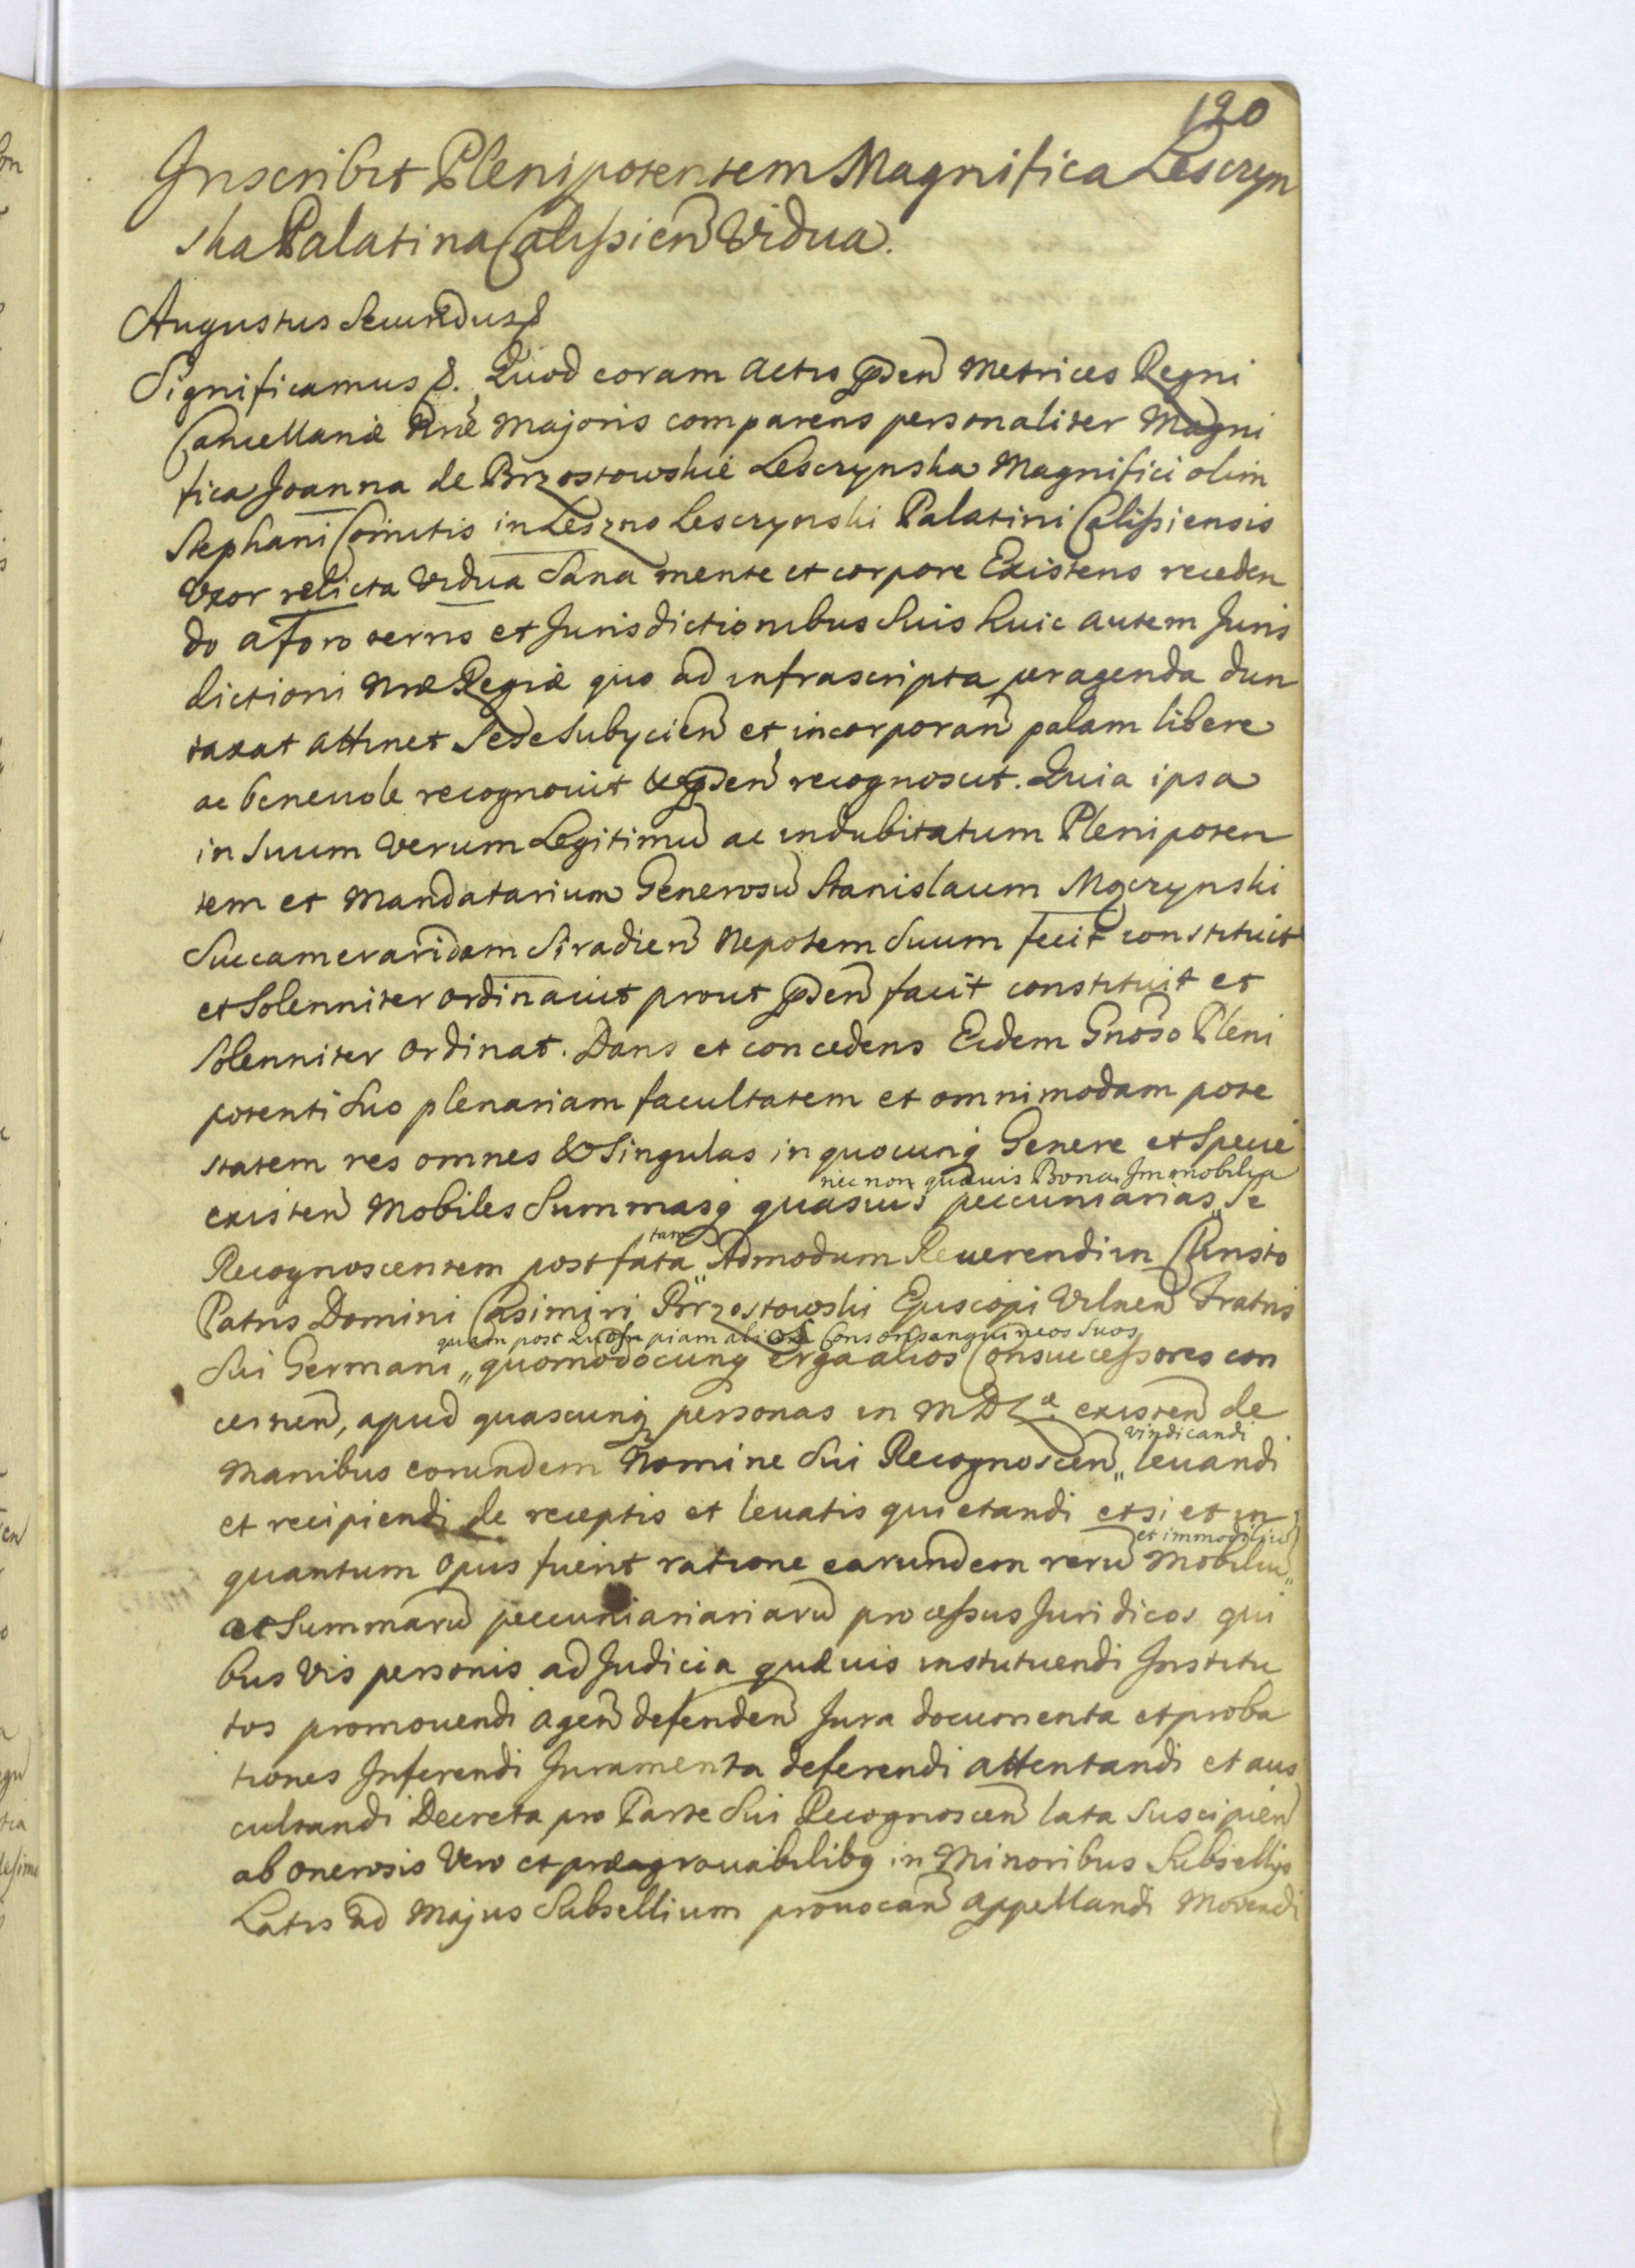 120
Inscribit Plenipotentem Magnifica Lesczyn
ska Palatina Calissien Vidua.
Augustus Secundus &
Significamus &. Quod coram Actis pnden Metrices Regni
Cancellariæ Nræ Majoris comparens personaliter Magni
fica Joanna de Brzostowskie Lesczynska Magnifici olim
Stephani Comitis in Leszno Lesczynski Palatini Calissiensis
Uxor relicta Vidua Sana mente et corpore Existens receden
do a foro terris et Jurisdictionibus Suis huic autem Juris
dictioni Nræ Regiæ quo ad infrascripta peragenda dun
taxat attinet Sese Subycien et incorporan palam libere
ac beneuole recognouit & pnden recognoscit. Quia ipsa
in Suum Verum Legitimu ac indubitatum Plenipoten
tem et Mandatarium Generosu Stanislaum Męczynski
Succamerarium Siradien Nepotem Suum fecit constituit
et Solenniter ordinauit prout pnden facit constituit et
Solenniter Ordinat. Dans et concedens Eidem Gnoso Pleni
potenti Suo plenariam facultatem et omnimodam pote
statem res omnes & Singulas in quocunq Genere et Specie
nec non quæuis Bona Immobilia
existen Mobiles Summasq quasuis peccuniarias „ Se
tam
Recognoscentem post fata „ Admodum Reuerendi in Christo
Patris Domini Casimiri Brzostowski Episcopi Vilnen Fratris
quam post quospiam alios Consanguineos Suos
Sui Germani „ quomodocunq erga alios Consuccessores con
cernen, apud quascunq personas in M D L existen de
vindicandi
Manibus eorundem Nomine Sui Recognoscen „ leuandi
et recipiendi de receptis et leuatis quietandi etsi et in
et immobiliu
quantum Opus fuerit ratione earundem reru Mobiliu „
et Summaru peccuniariariaru processus Juridicos qui
bus Vis personis ad Judicia quæuis instituendi Institu
tos promouendi agen defenden Jura documenta et proba
tiones Inferendi Juramenta deferendi attentandi et aus
cultandi Decreta pro Parte Sui Recognoscen lata Suscipien
ab onerosis Vero et prægrauabilibq in Minoribus Subsellijs
Latis ad Majus Subsellium prouocan appellandi Movendi